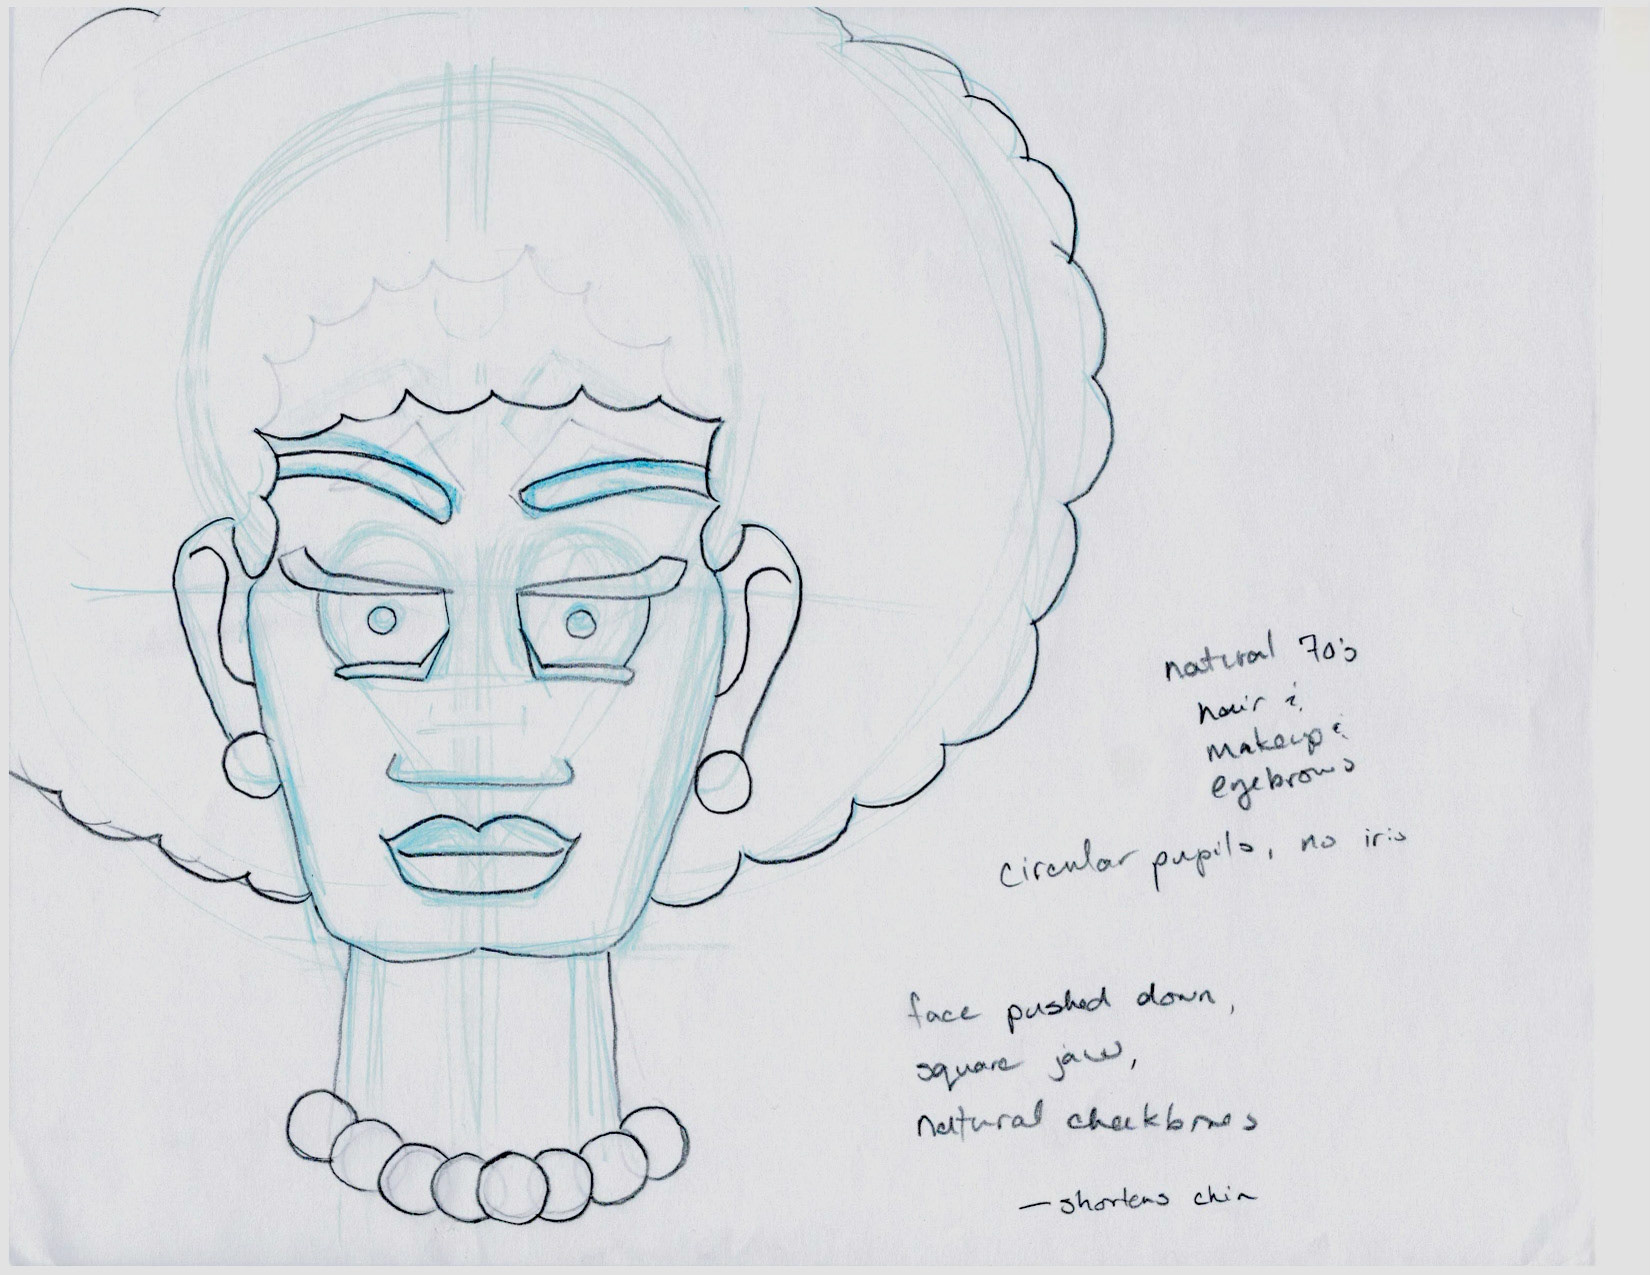 natural 70's
hair &
makeup &
eyebrows
circular pupils, no iris
face pushed down,
square jaw,
natural cheekbones
- shortens chin